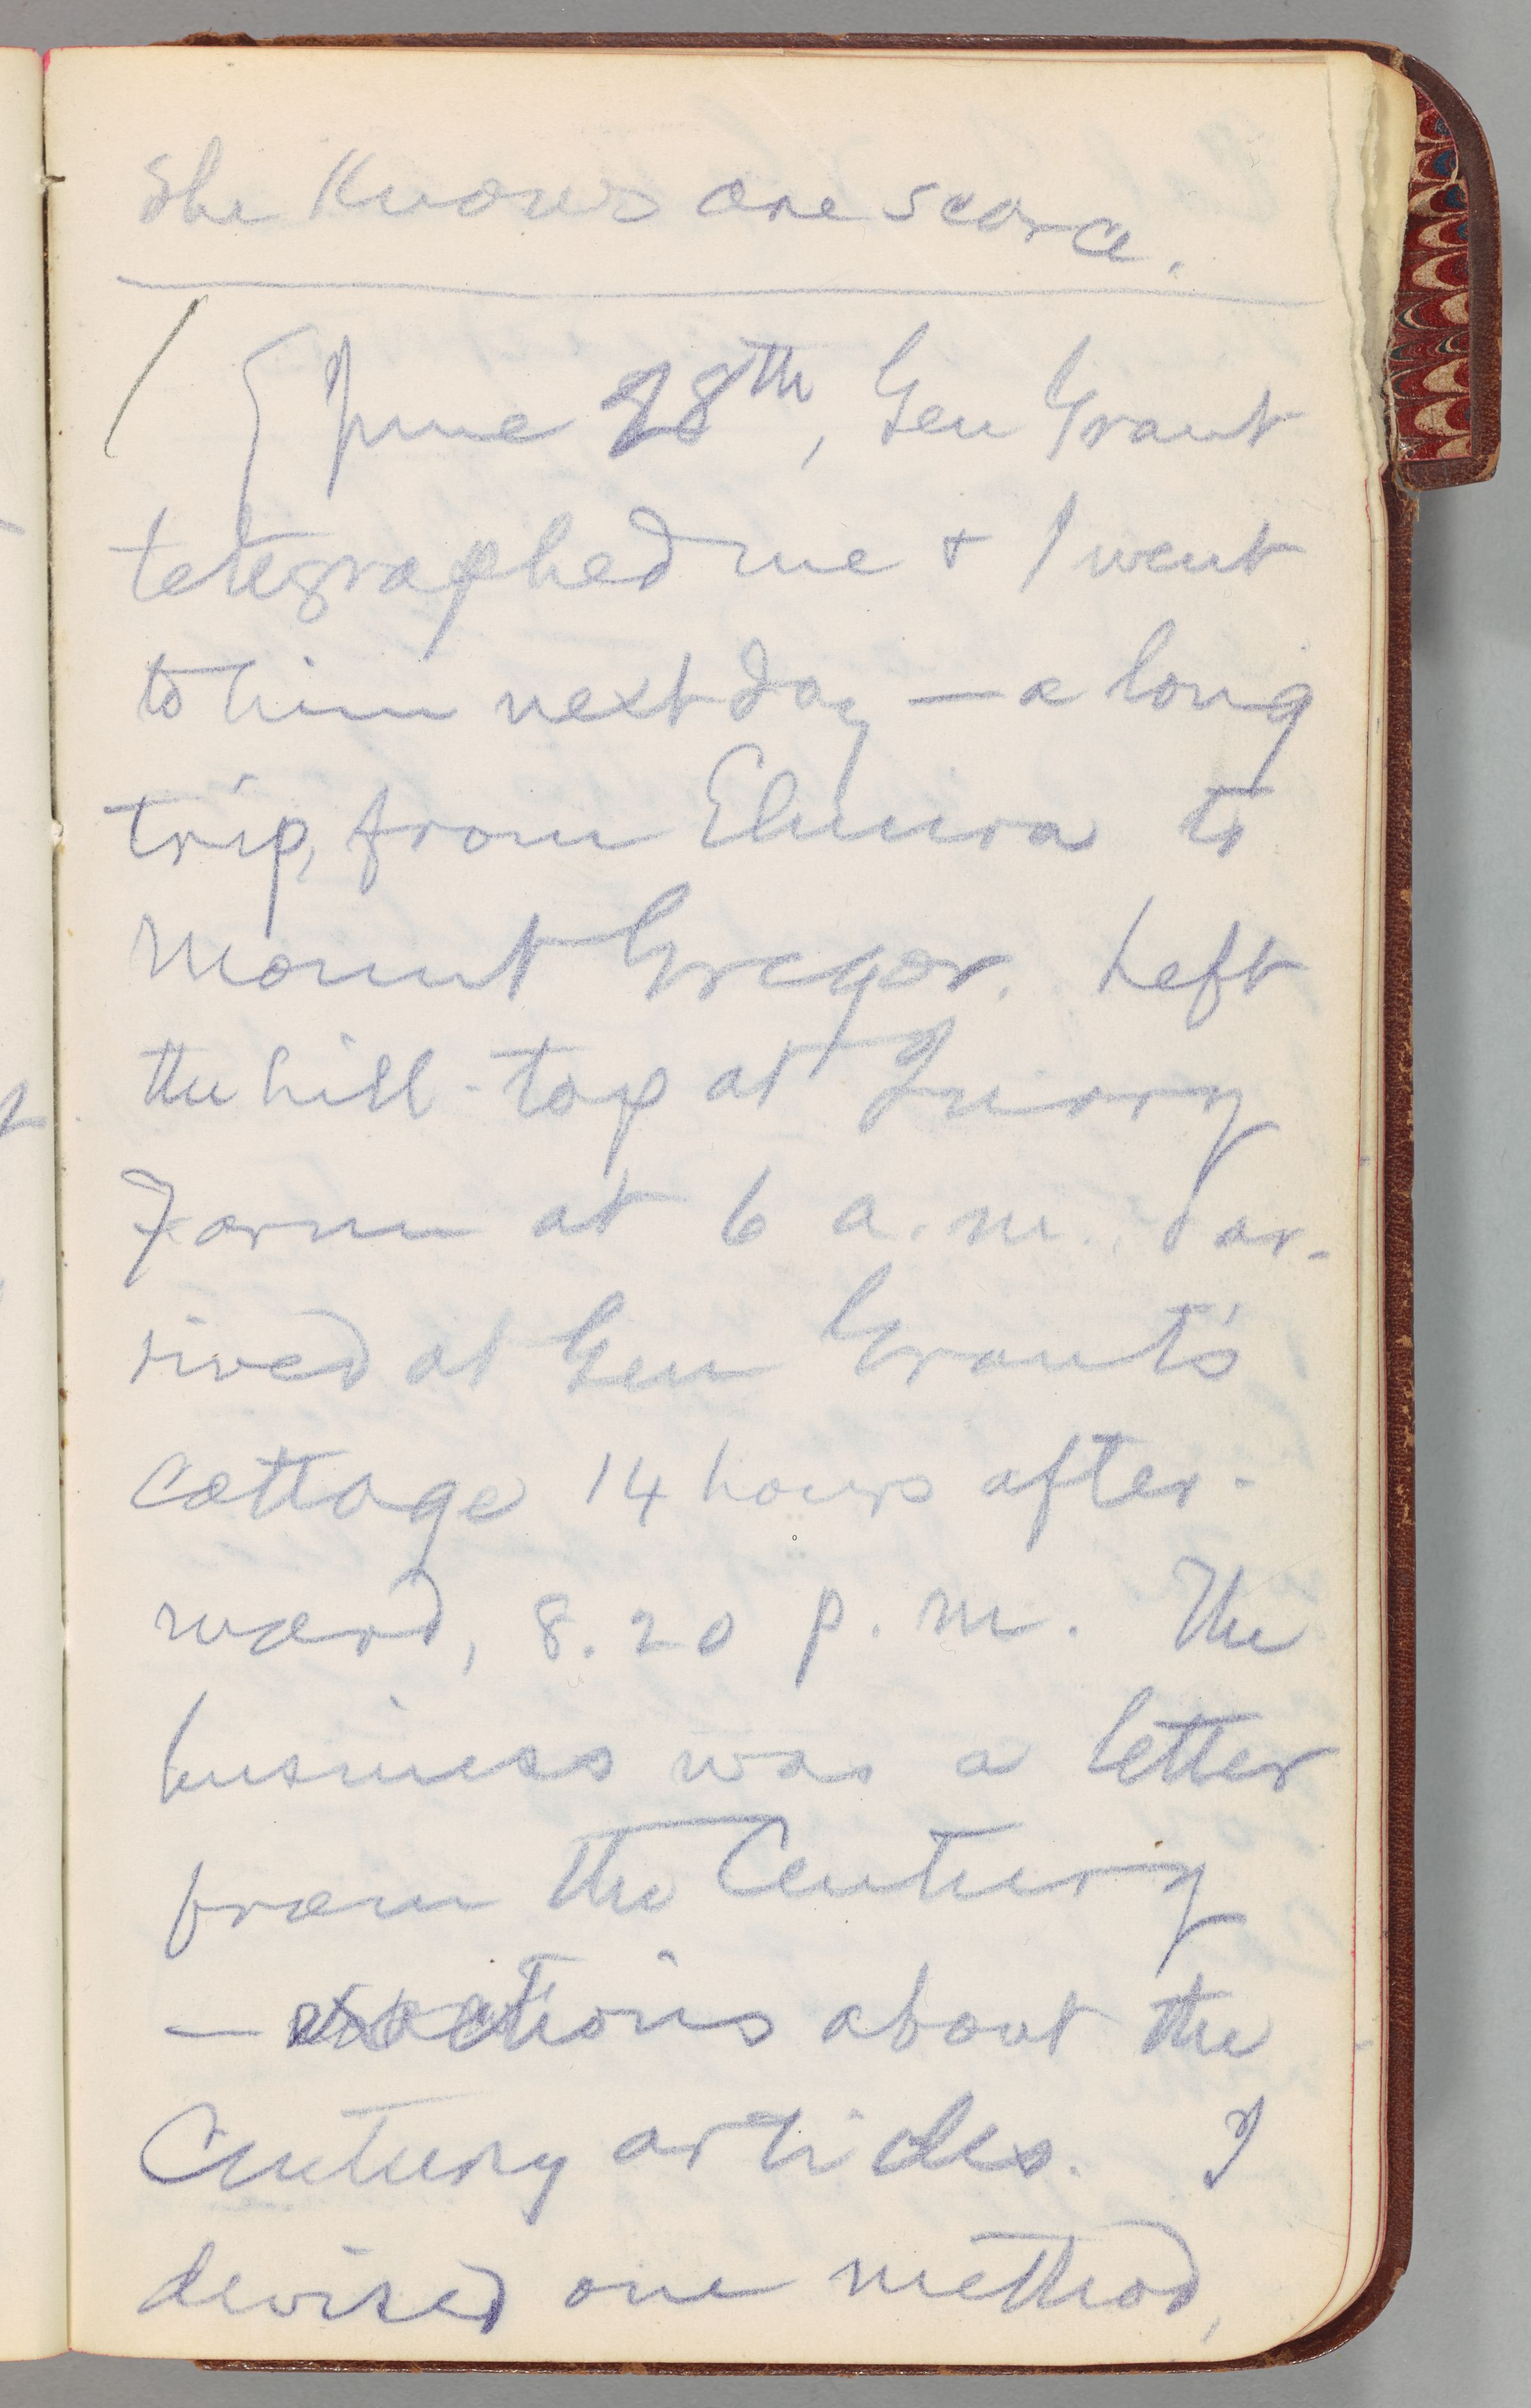 She knows are scarce.
[June 28th, Gen Grant
telegraphed me & I went
to him next day — a long
trip, from Elmira to
Mount Gregor. Left
the hill-top at Quarry
Farm at 6 a.m., & ar-
rived at Gen Grant's
cottage 14 hours after-
ward, 8.20 p.m. The
business was a letter
from the Century
— exactions about the
Century articles. I
devised one method,